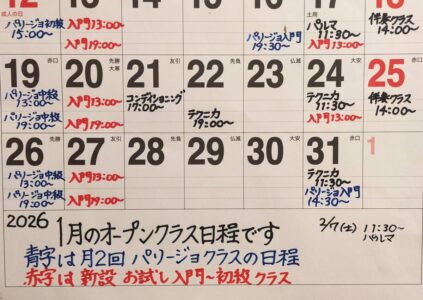 12 13 14 15 16 17 18
成人の日 土用
パリージョ初級
15:00~
入門13:00~
入門19:00~
パリージョ入門
19:30~
パルマ
11:30~
入門13:00~
伴奏クラス
14:00~
19 先勝 20 先負 大寒 21 友引 22 先負 23 仏滅 24 大安 25 赤口
パリージョ中級
13:00~
パリージョ中級
19:00~
入門13:00~
入門19:00~
コンディショニング
17:00~
テクニカ
19:00~
テクニカ
11:30~
入門13:00~
伴奏クラス
14:00~
26 先勝 27 友引 28 先負 29 仏滅 30 大安 31 赤口 1
パリージョ中級
13:00~
パリージョ中級
19:00~
入門13:00~
入門19:00~
テクニカ
11:30~
パリージョ入門
14:30~
2026
1月のオープンクラス日程です
2/7(土) 11:30~
パルマ
青字は月2回 パリージョクラスの日程
赤字は 新設 お試し入門~初級クラス